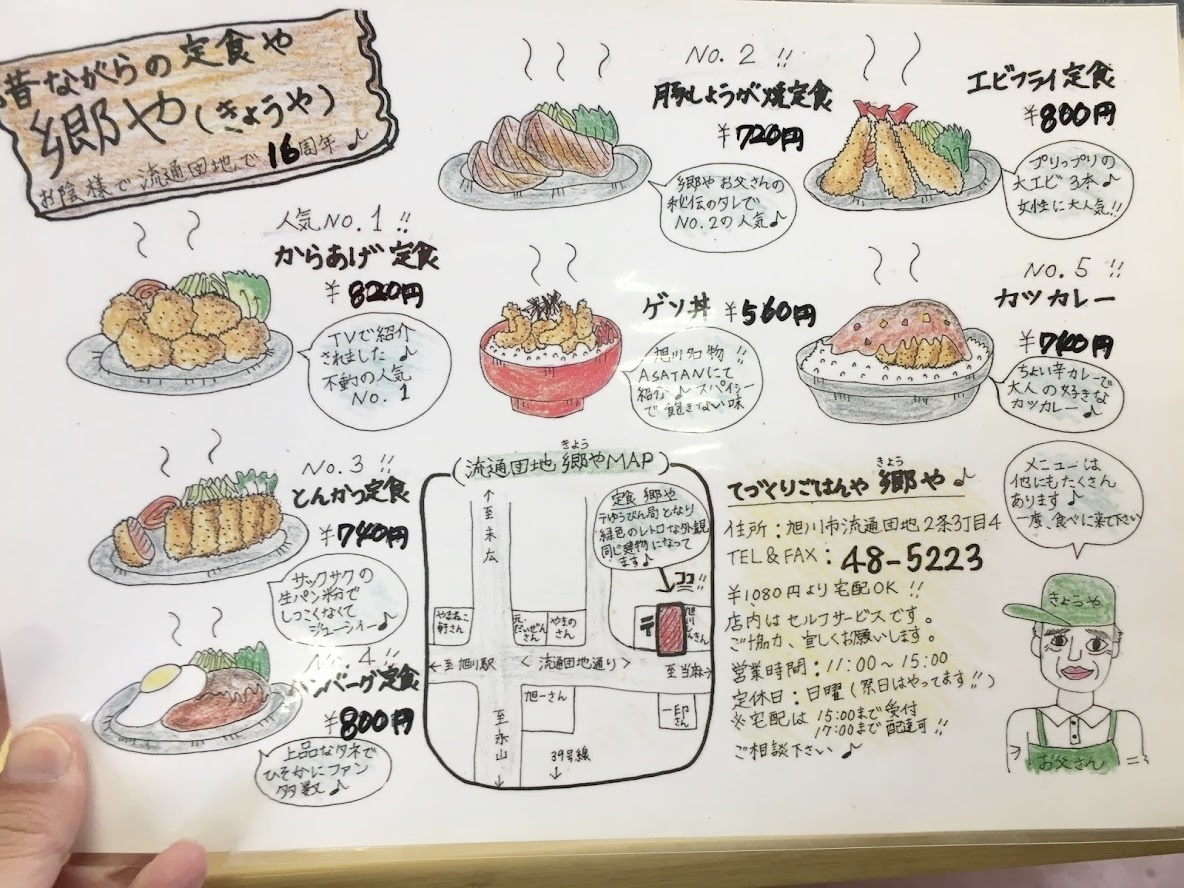 昔ながらの定食や
郷や(きょうや)
お陰様で流通団地で16周年♪
人気No.1!!
からあげ定食
¥820円
TVで紹介
されました♪
不動の人気
No.1
No.2!!
豚しょうが焼定食
¥720円
郷やお父さんの
秘伝のタレで
No.2の人気♪
エビフライ定食
¥800円
プリップリの
大エビ3本♪
女性に大人気!!
ゲソ丼 ¥560円
旭川名物!!
ASATANにて
紹介♪スパイシー
で飽きない味
No.5!!
カツカレー
¥740円
ちょい辛カレーで
大人の好きな
カツカレー♪
No.3!!
とんかつ定食
¥740円
サックサクの
生パン粉で
しつこくなくて
ジューシィー♪
No.4!!
ハンバーグ定食
¥800円
上品なタネで
ひそかにファン
多数♪
きょう
(流通団地 郷やMAP)
↑至末広
定食 郷や
〒ゆうびん局となり
緑色のレトロな外観
同じ建物になって
ます♪
ココ!!
やまねこ
軒さん
元.
だいぜんさん
やまの
さん
〒
←至旭川駅
<流通団地通り>
至当麻→
旭一さん
一印
さん
至永山↓
39号線
↓
きょう
てづくりごはんや 郷や♪
住所:旭川市流通団地2条3丁目4
TEL&FAX:48-5223
¥1080円より宅配OK!!
店内はセルフサービスです。
ご協力、宜しくお願いします。
営業時間:11:00~15:00
定休日:日曜(祭日はやってます!!)
※宅配は 15:00まで受付
17:00まで配達可!!
ご相談下さい♪
メニューは
他にもたくさん
あります♪
一度、食べに来て下さい
きょうや
お父さん